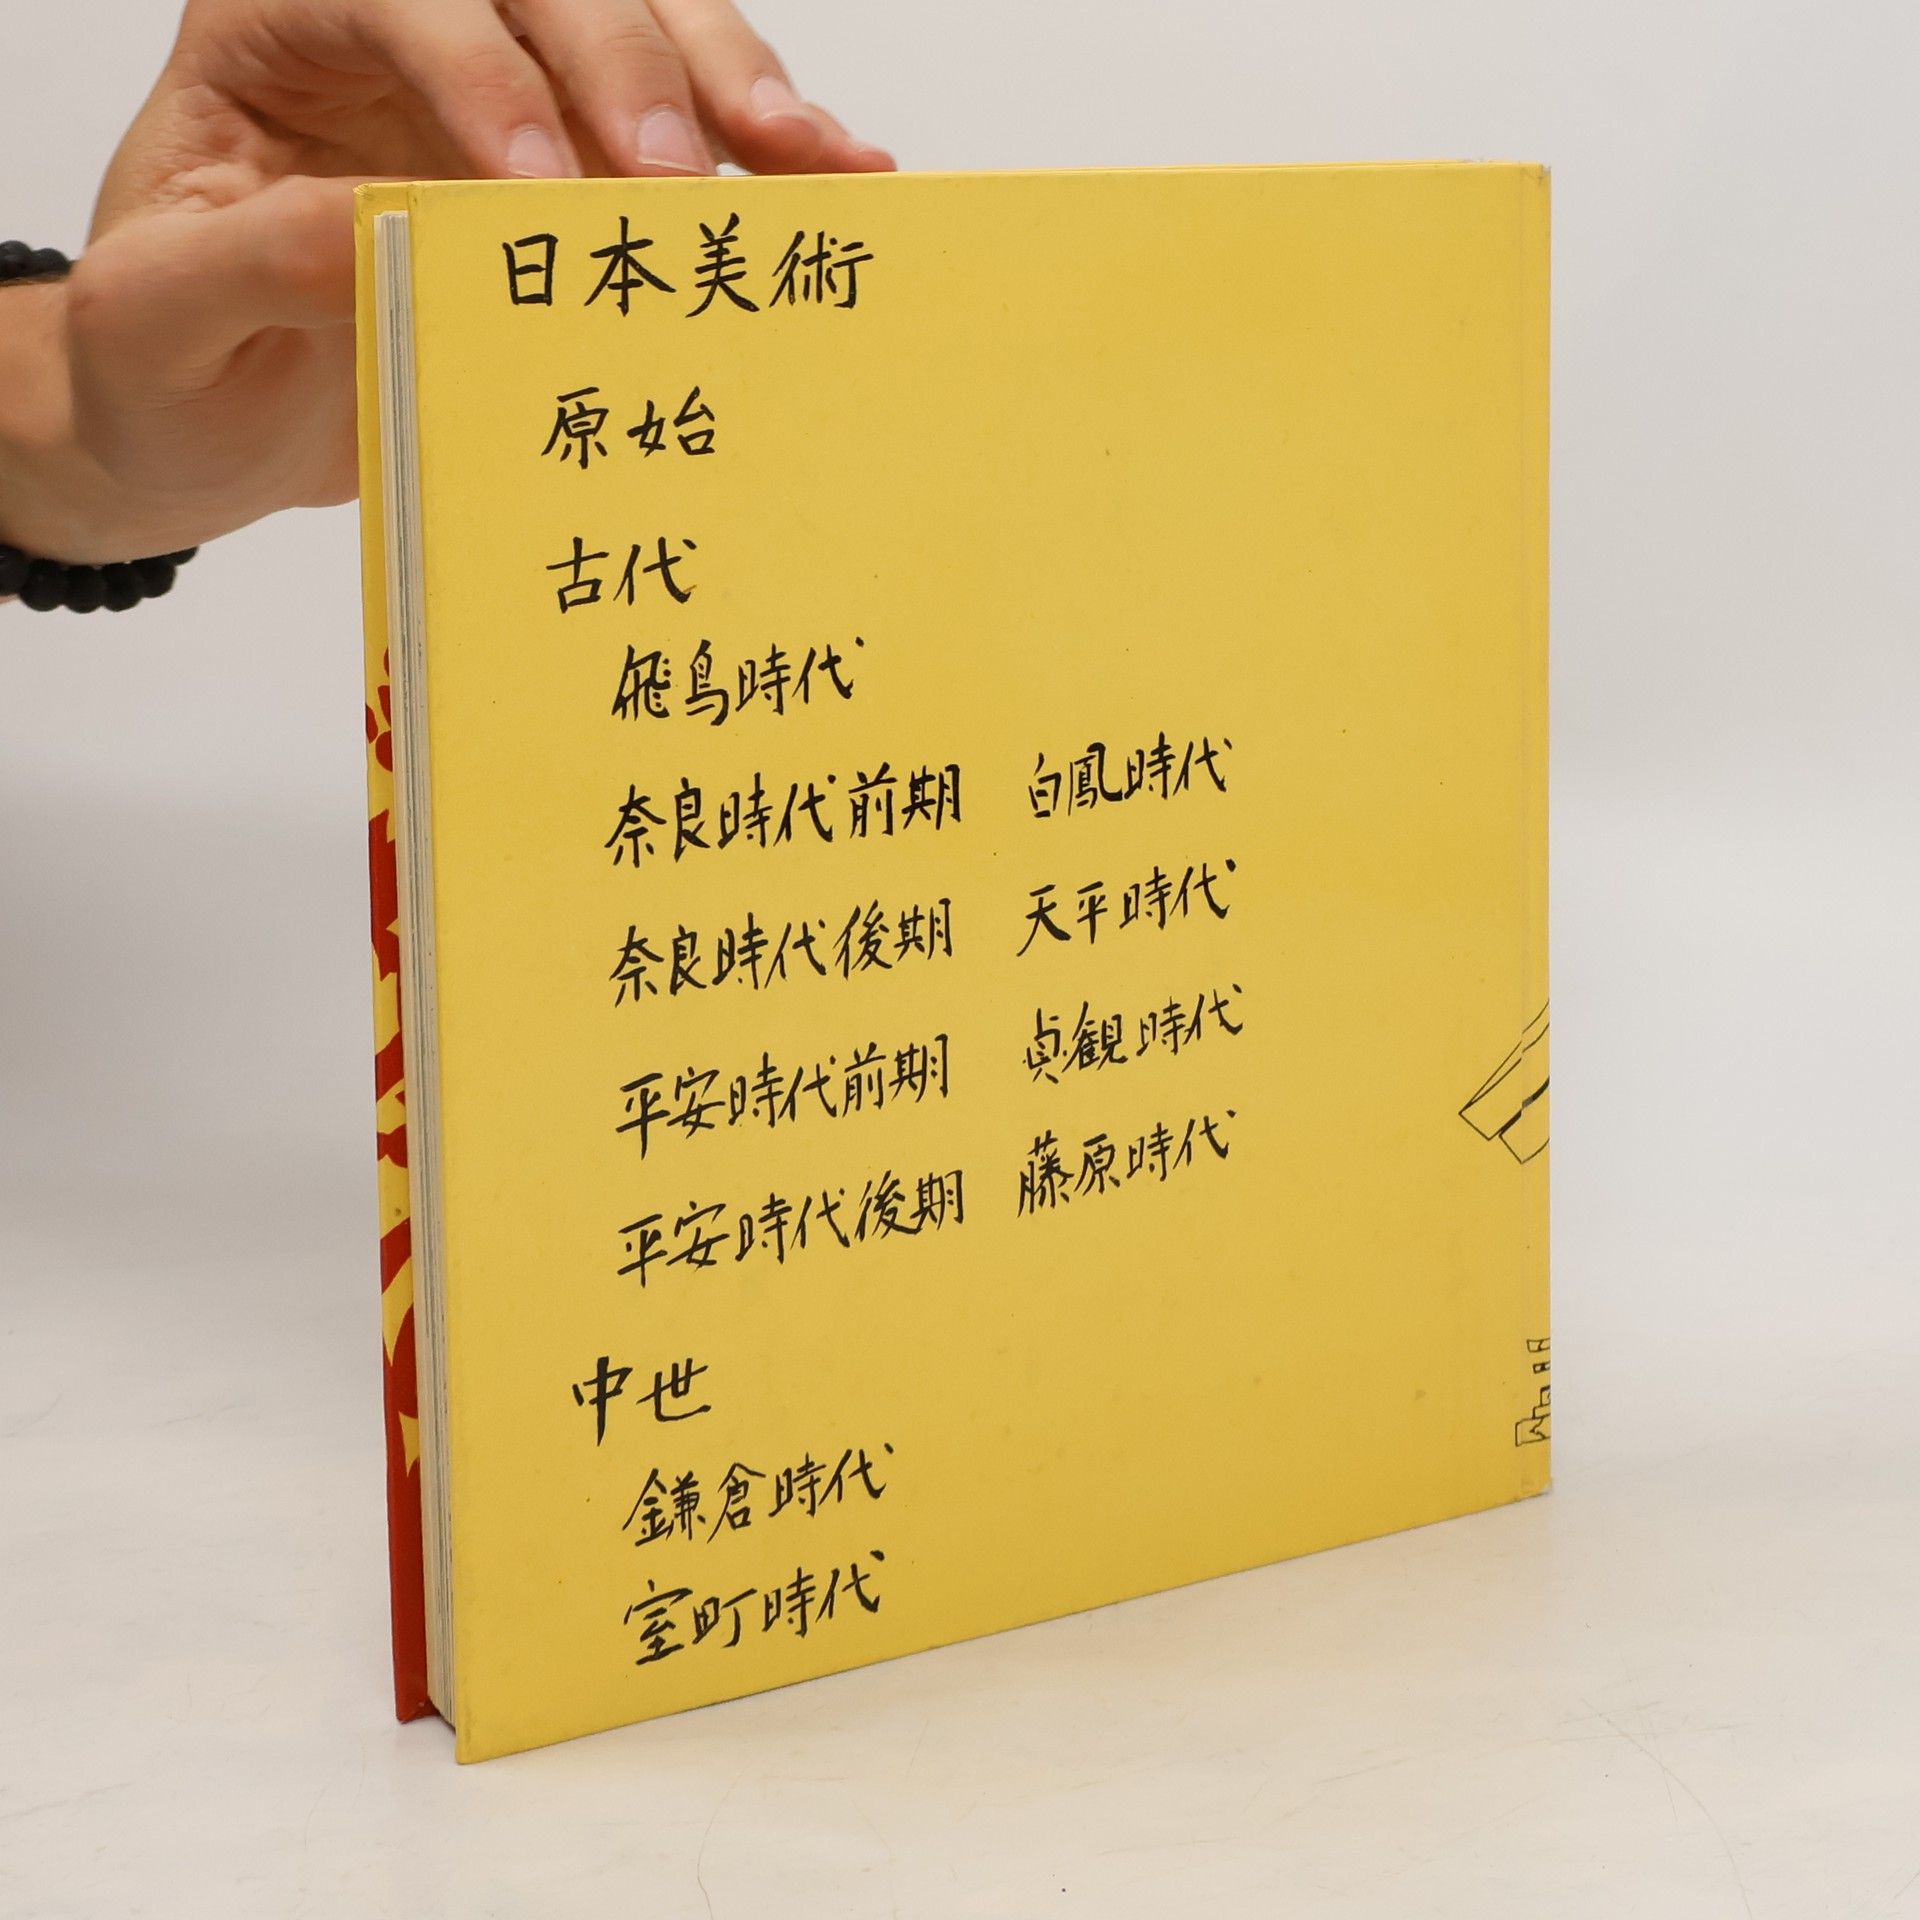 日本美術
原始
古代
飛鳥時代
奈良時代前期 白鳳時代
奈良時代後期 天平時代
平安時代前期 貞観時代
平安時代後期 藤原時代
中世
鎌倉時代
室町時代